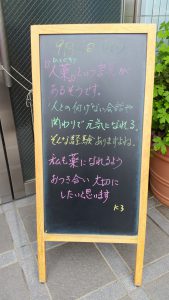 9月 日
じんやく
"人薬"という言葉が
あるそうです。
人との何げない会話や
関わりで元気になれる。
そんな経験ありますよね。
私も薬になれるよう
おつき合い大切に
したいと思います